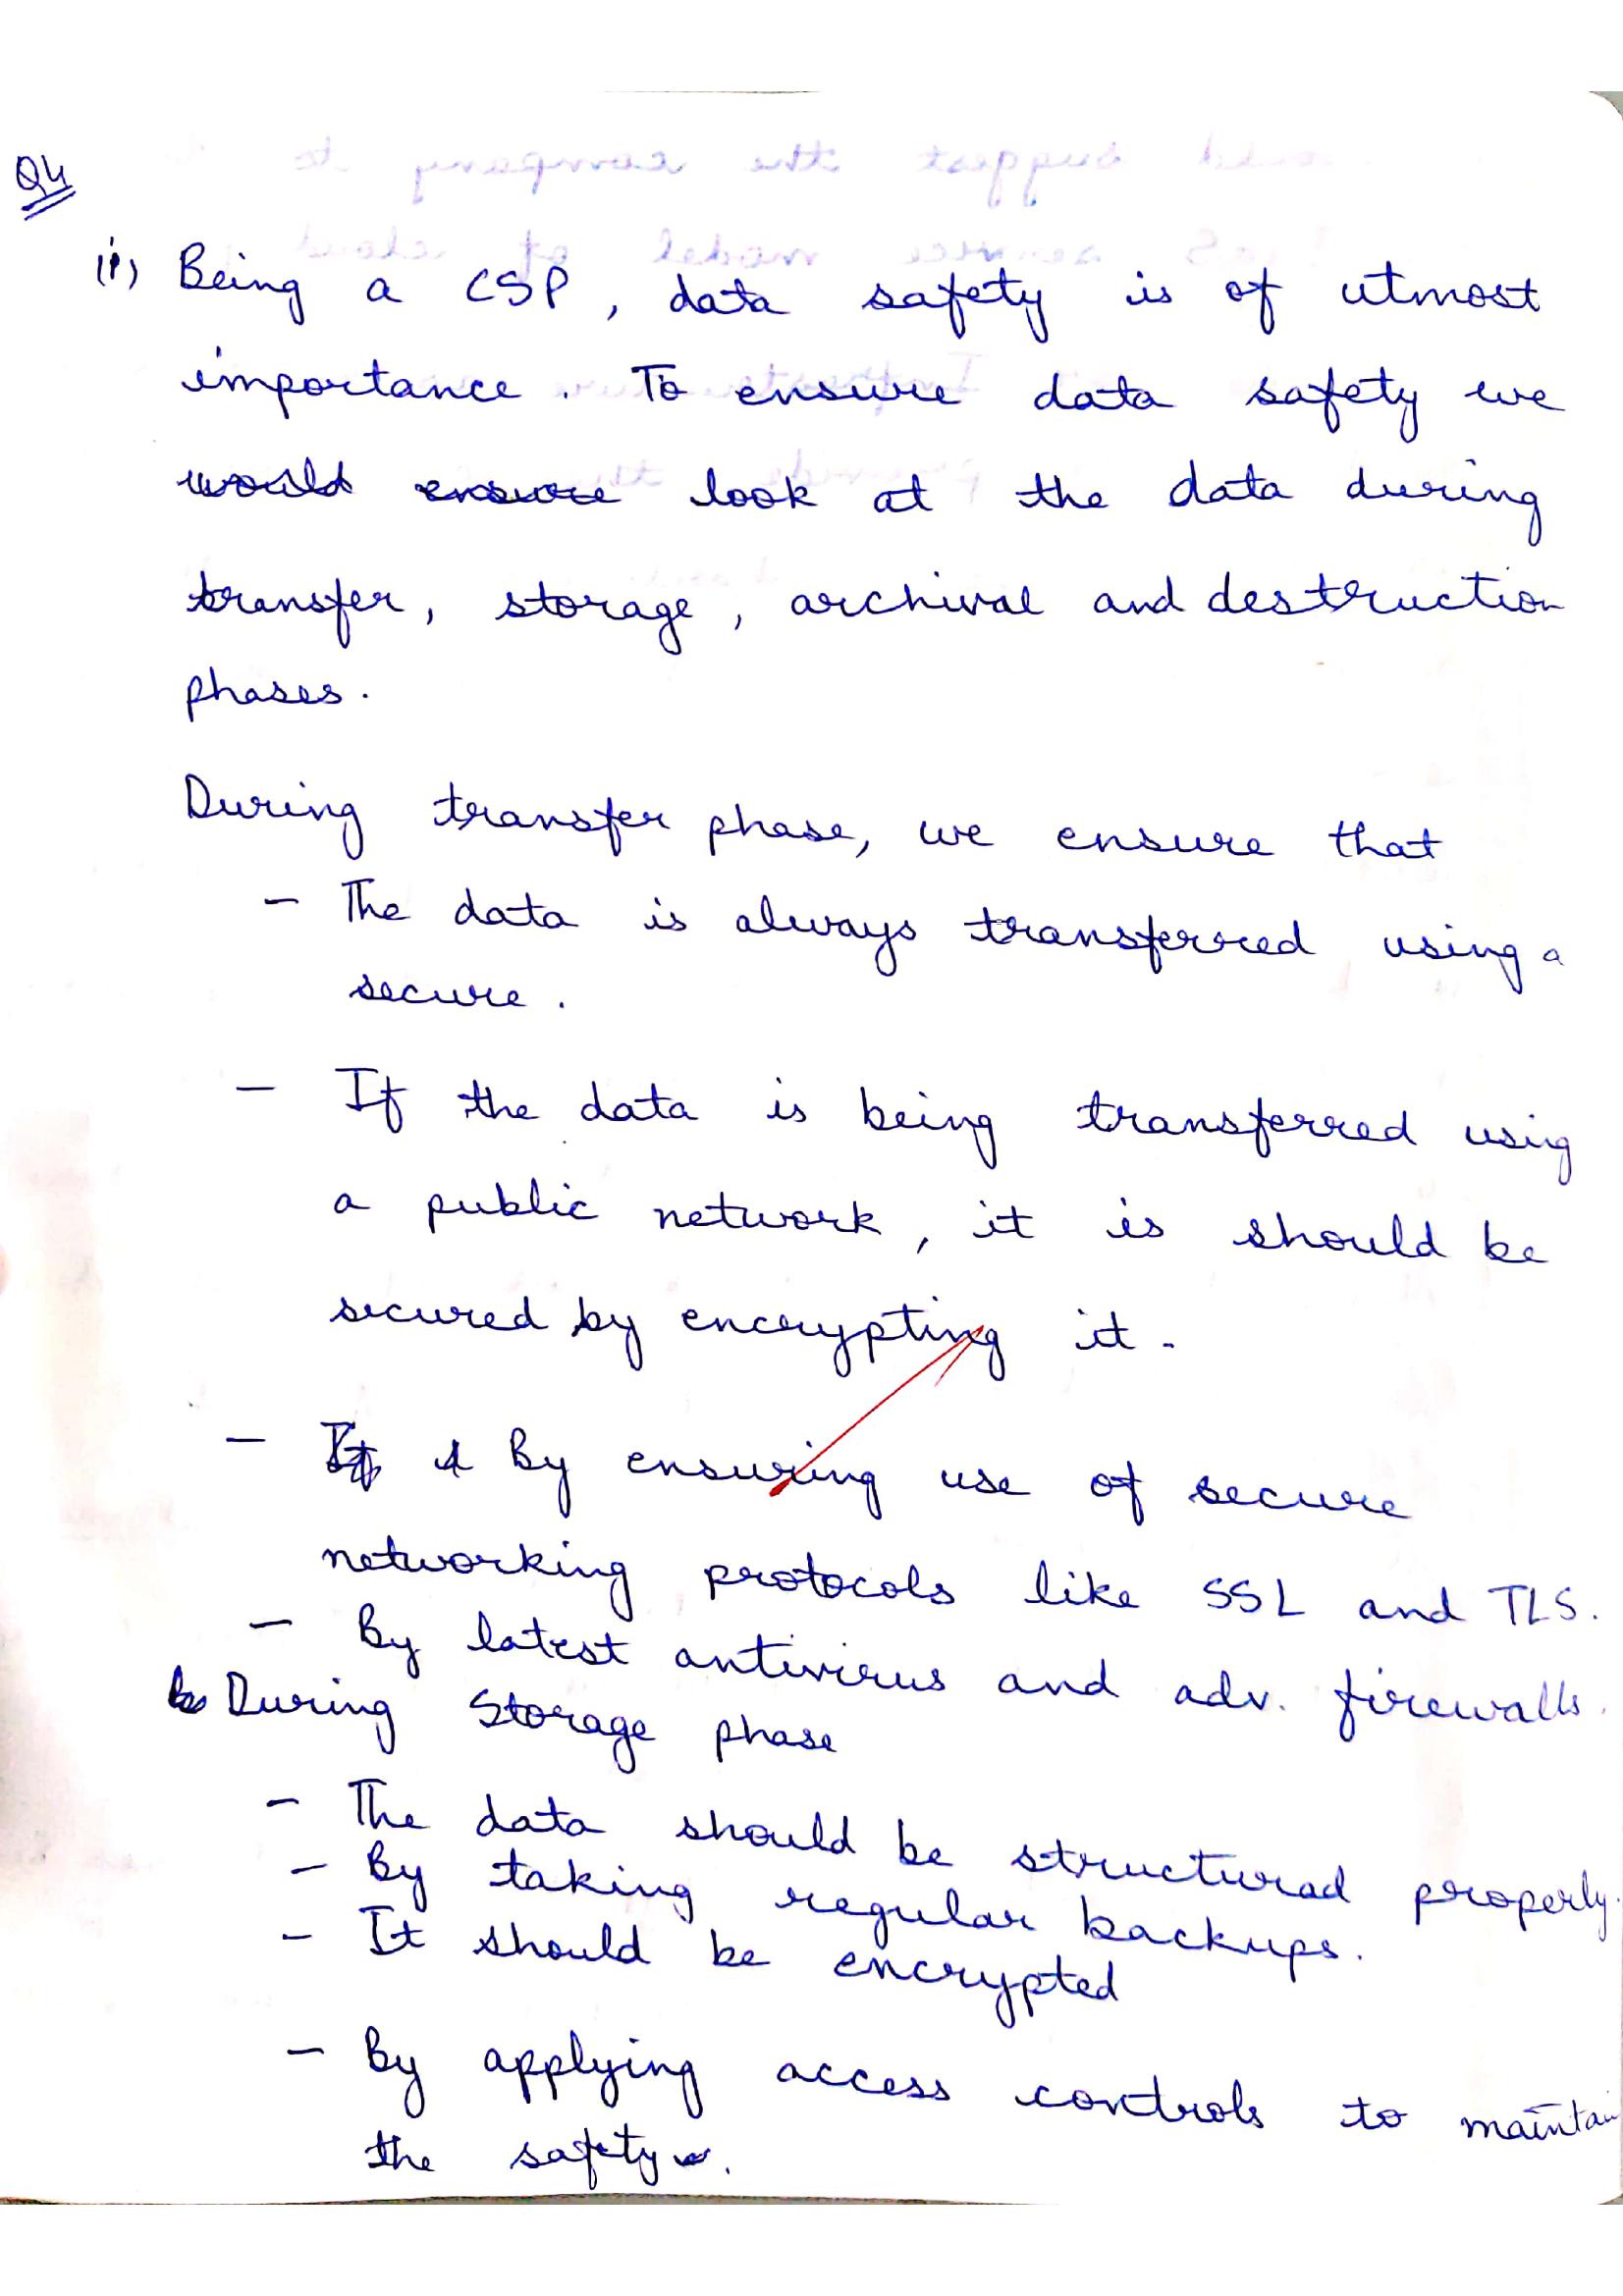 Q4
(i) Being a CSP, data safety is of utmost
importance. To ensure data safety we
would ensure look at the data during
transfer, storage, archival and destruction
phases.
During transfer phase, we ensure that
- The data is always transferred using a
secure.
- If the data is being transferred using
a public network, it is should be
secured by encrypting it.
- If By ensuring use of secure
networking protocols like SSL and TLS.
- By latest antivirus and adv. firewalls.
During Storage phase
- The data should be structured properly.
- By taking regular backups.
- It should be encrypted
- By applying access controls to maintain
the safety.